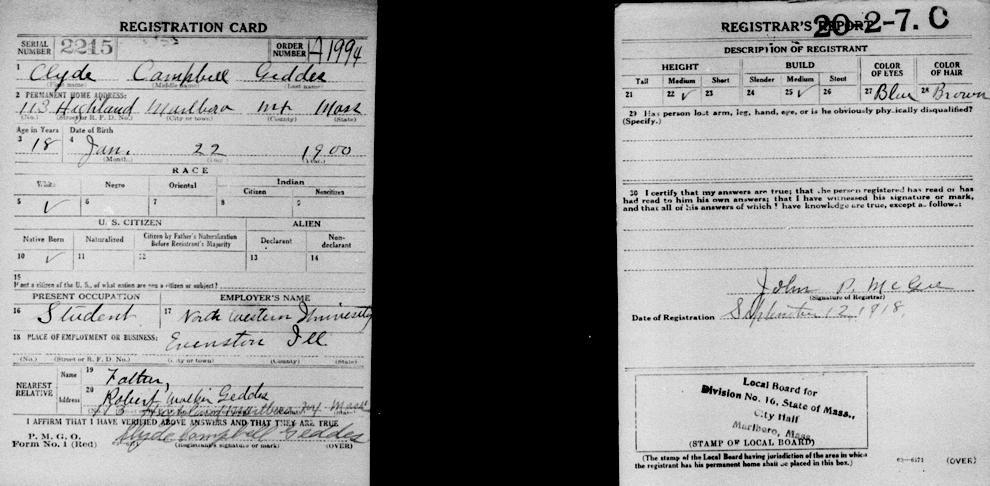 REGISTRATION CARD
SERIAL NUMBER 2215 ORDER NUMBER A1994
1 Clyde Campbell Geddes
(First name) (Middle name) (Last name)
2 PERMANENT HOME ADDRESS:
113 Highland Marlboro Mass
(No.) (Street or R. F. D. No.) (City or town) (County) (State)
Age in Years Date of Birth
3 18 4 Jan. 22 1900
(Month.) (Day.) (Year.)
RACE
White Negro Oriental Indian
Citizen Noncitizen
5 ✓ 6 7 8 9
U. S. CITIZEN ALIEN
Native Born Naturalized Citizen by Father's Naturalization Before Registrant's Majority Declarant Non-declarant
10 ✓ 11 12 13 14
15
If not a citizen of the U. S., of what nation are you a citizen or subject?
PRESENT OCCUPATION EMPLOYER'S NAME
16 Student 17 North Western University
18 PLACE OF EMPLOYMENT OR BUSINESS: Evenston Ill
(No.) (Street or R. F. D. No.) (City or town) (County) (State)
NEAREST RELATIVE Name 19 Father,
Address 20 Robert Geddes
Highland Mass
I AFFIRM THAT I HAVE VERIFIED ABOVE ANSWERS AND THAT THEY ARE TRUE
P. M. G. O.
Form No. 1 (Red) Clyde Campbell Geddes
(Registrant's signature or mark) (OVER)
20-2-7. C
REGISTRAR'S REPORT
DESCRIPTION OF REGISTRANT
HEIGHT BUILD COLOR OF EYES COLOR OF HAIR
Tall Medium Short Slender Medium Stout
21 22 ✓ 23 24 25 ✓ 26 27 Blue 28 Brown
29 Has person lost arm, leg, hand, eye, or is he obviously physically disqualified?
(Specify.)
30 I certify that my answers are true; that the person registered has read or has
had read to him his own answers; that I have witnessed his signature or mark,
and that all of his answers of which I have knowledge are true, except as follows:
John P. McGee
(Signature of Registrar)
Date of Registration September 12 1918.
Local Board for
Division No. 16, State of Mass.,
City Hall
Marlboro, Mass.
(STAMP OF LOCAL BOARD)
(The stamp of the Local Board having jurisdiction of the area in which
the registrant has his permanent home shall be placed in this box.)
03—6171 (OVER)